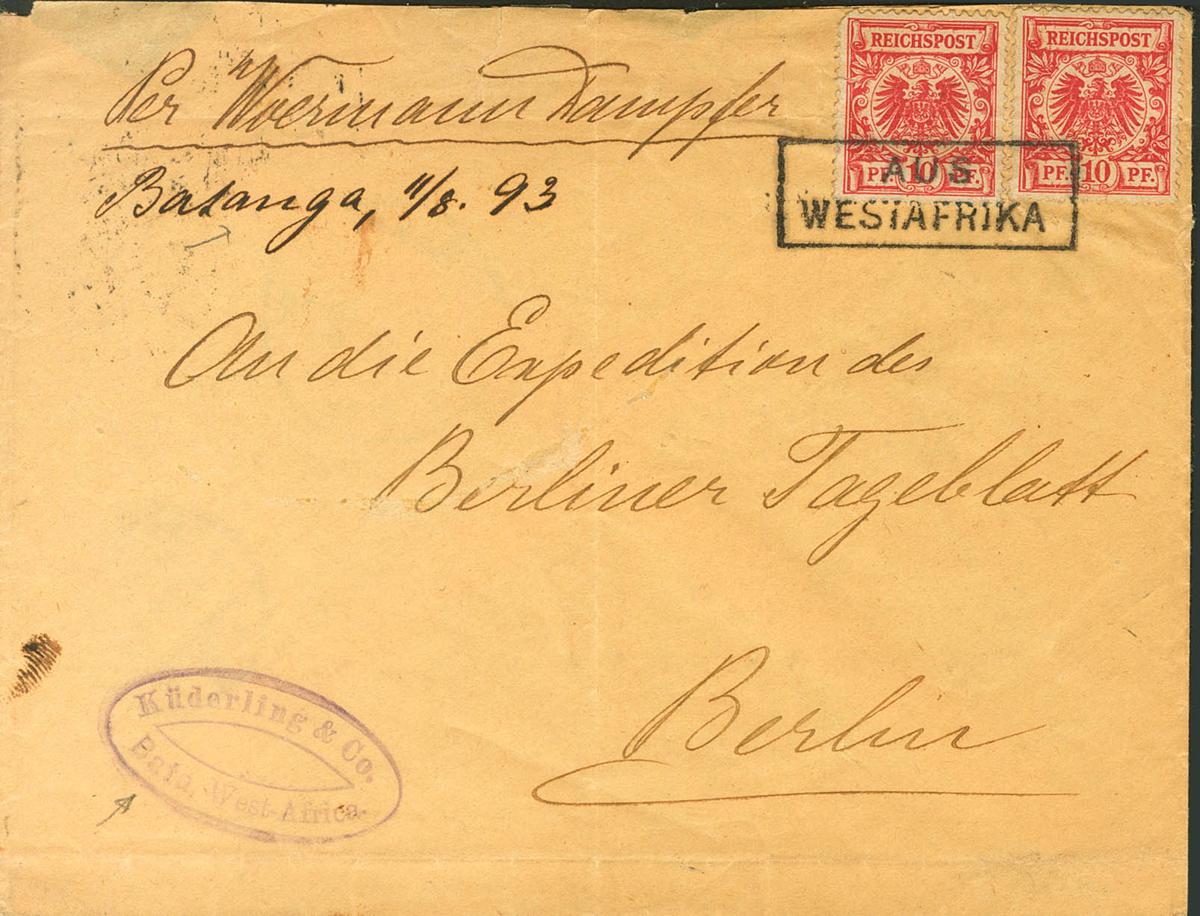 Per Woermann Dampfer
REICHSPOST
PF. 10 PF.
REICHSPOST
PF. 10 PF.
AUS
WESTAFRIKA
Batanga, 11/8. 93
An die Expedition des
Berliner Tageblatt
Berlin
Küderling & Co.
Bata, West-Africa.